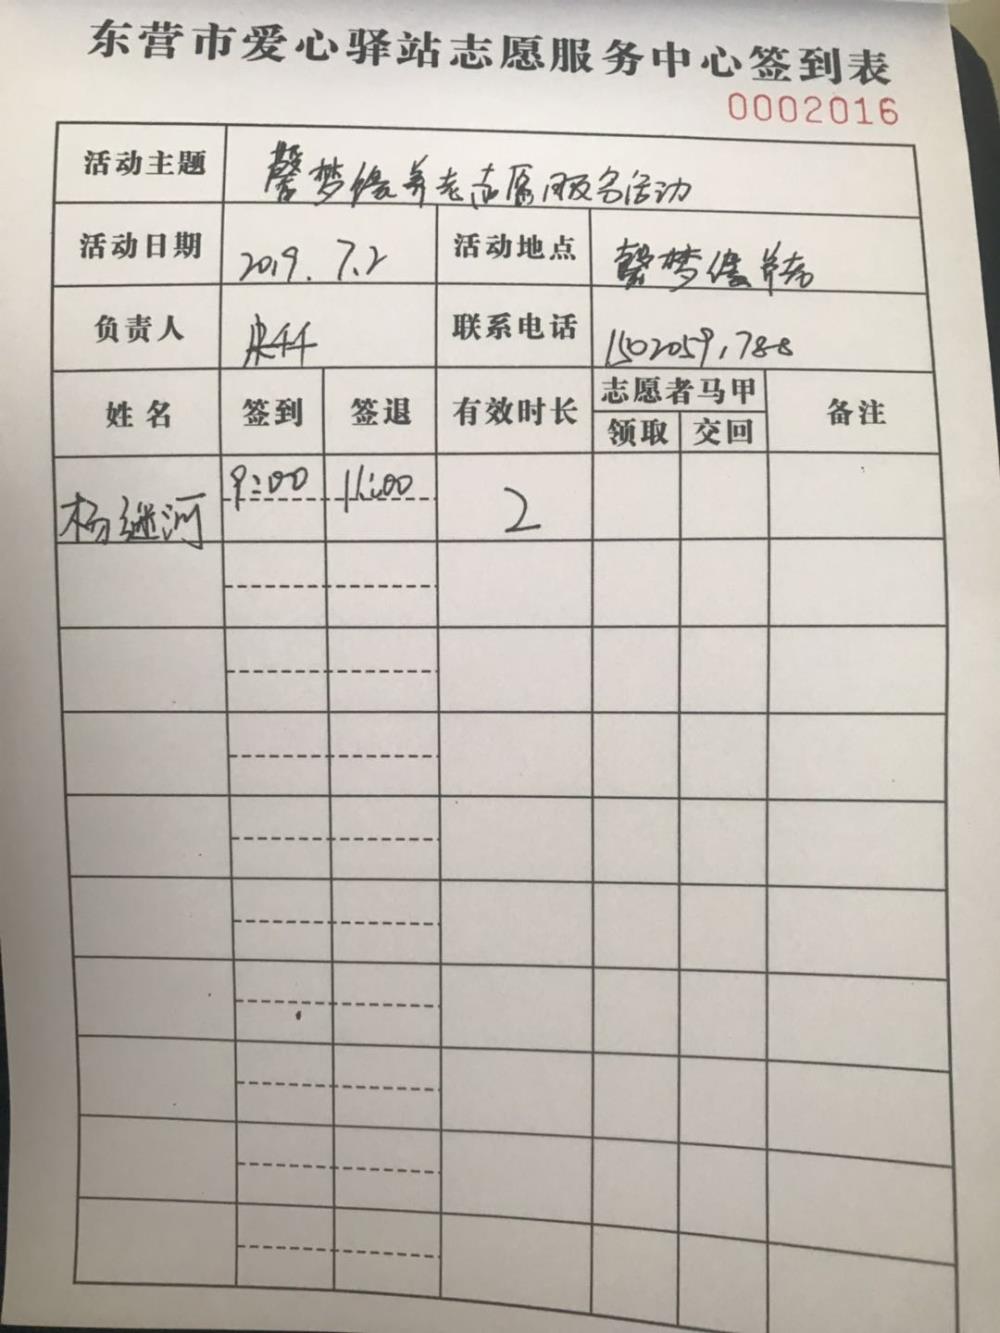 东营市爱心驿站志愿服务中心签到表
0002016
活动主题 馨梦缘养老志愿服务活动
活动日期 2019.7.2 活动地点 馨梦缘养老
负责人 联系电话
姓名 签到 签退 有效时长 志愿者马甲 备注
领取 交回
杨继河 9:00 11:00 2